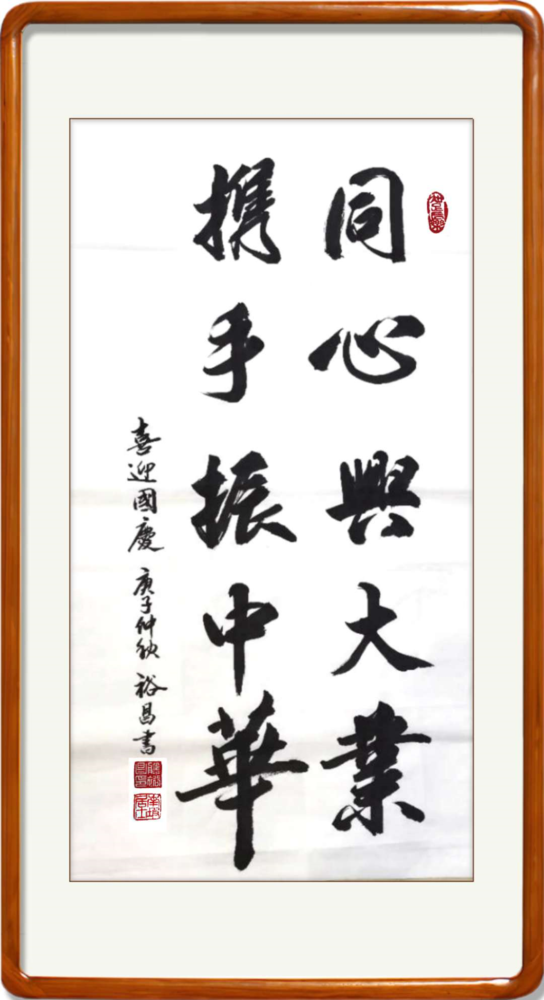 同心興大業
携手振中華
喜迎國慶 庚子仲秋 裕昌書